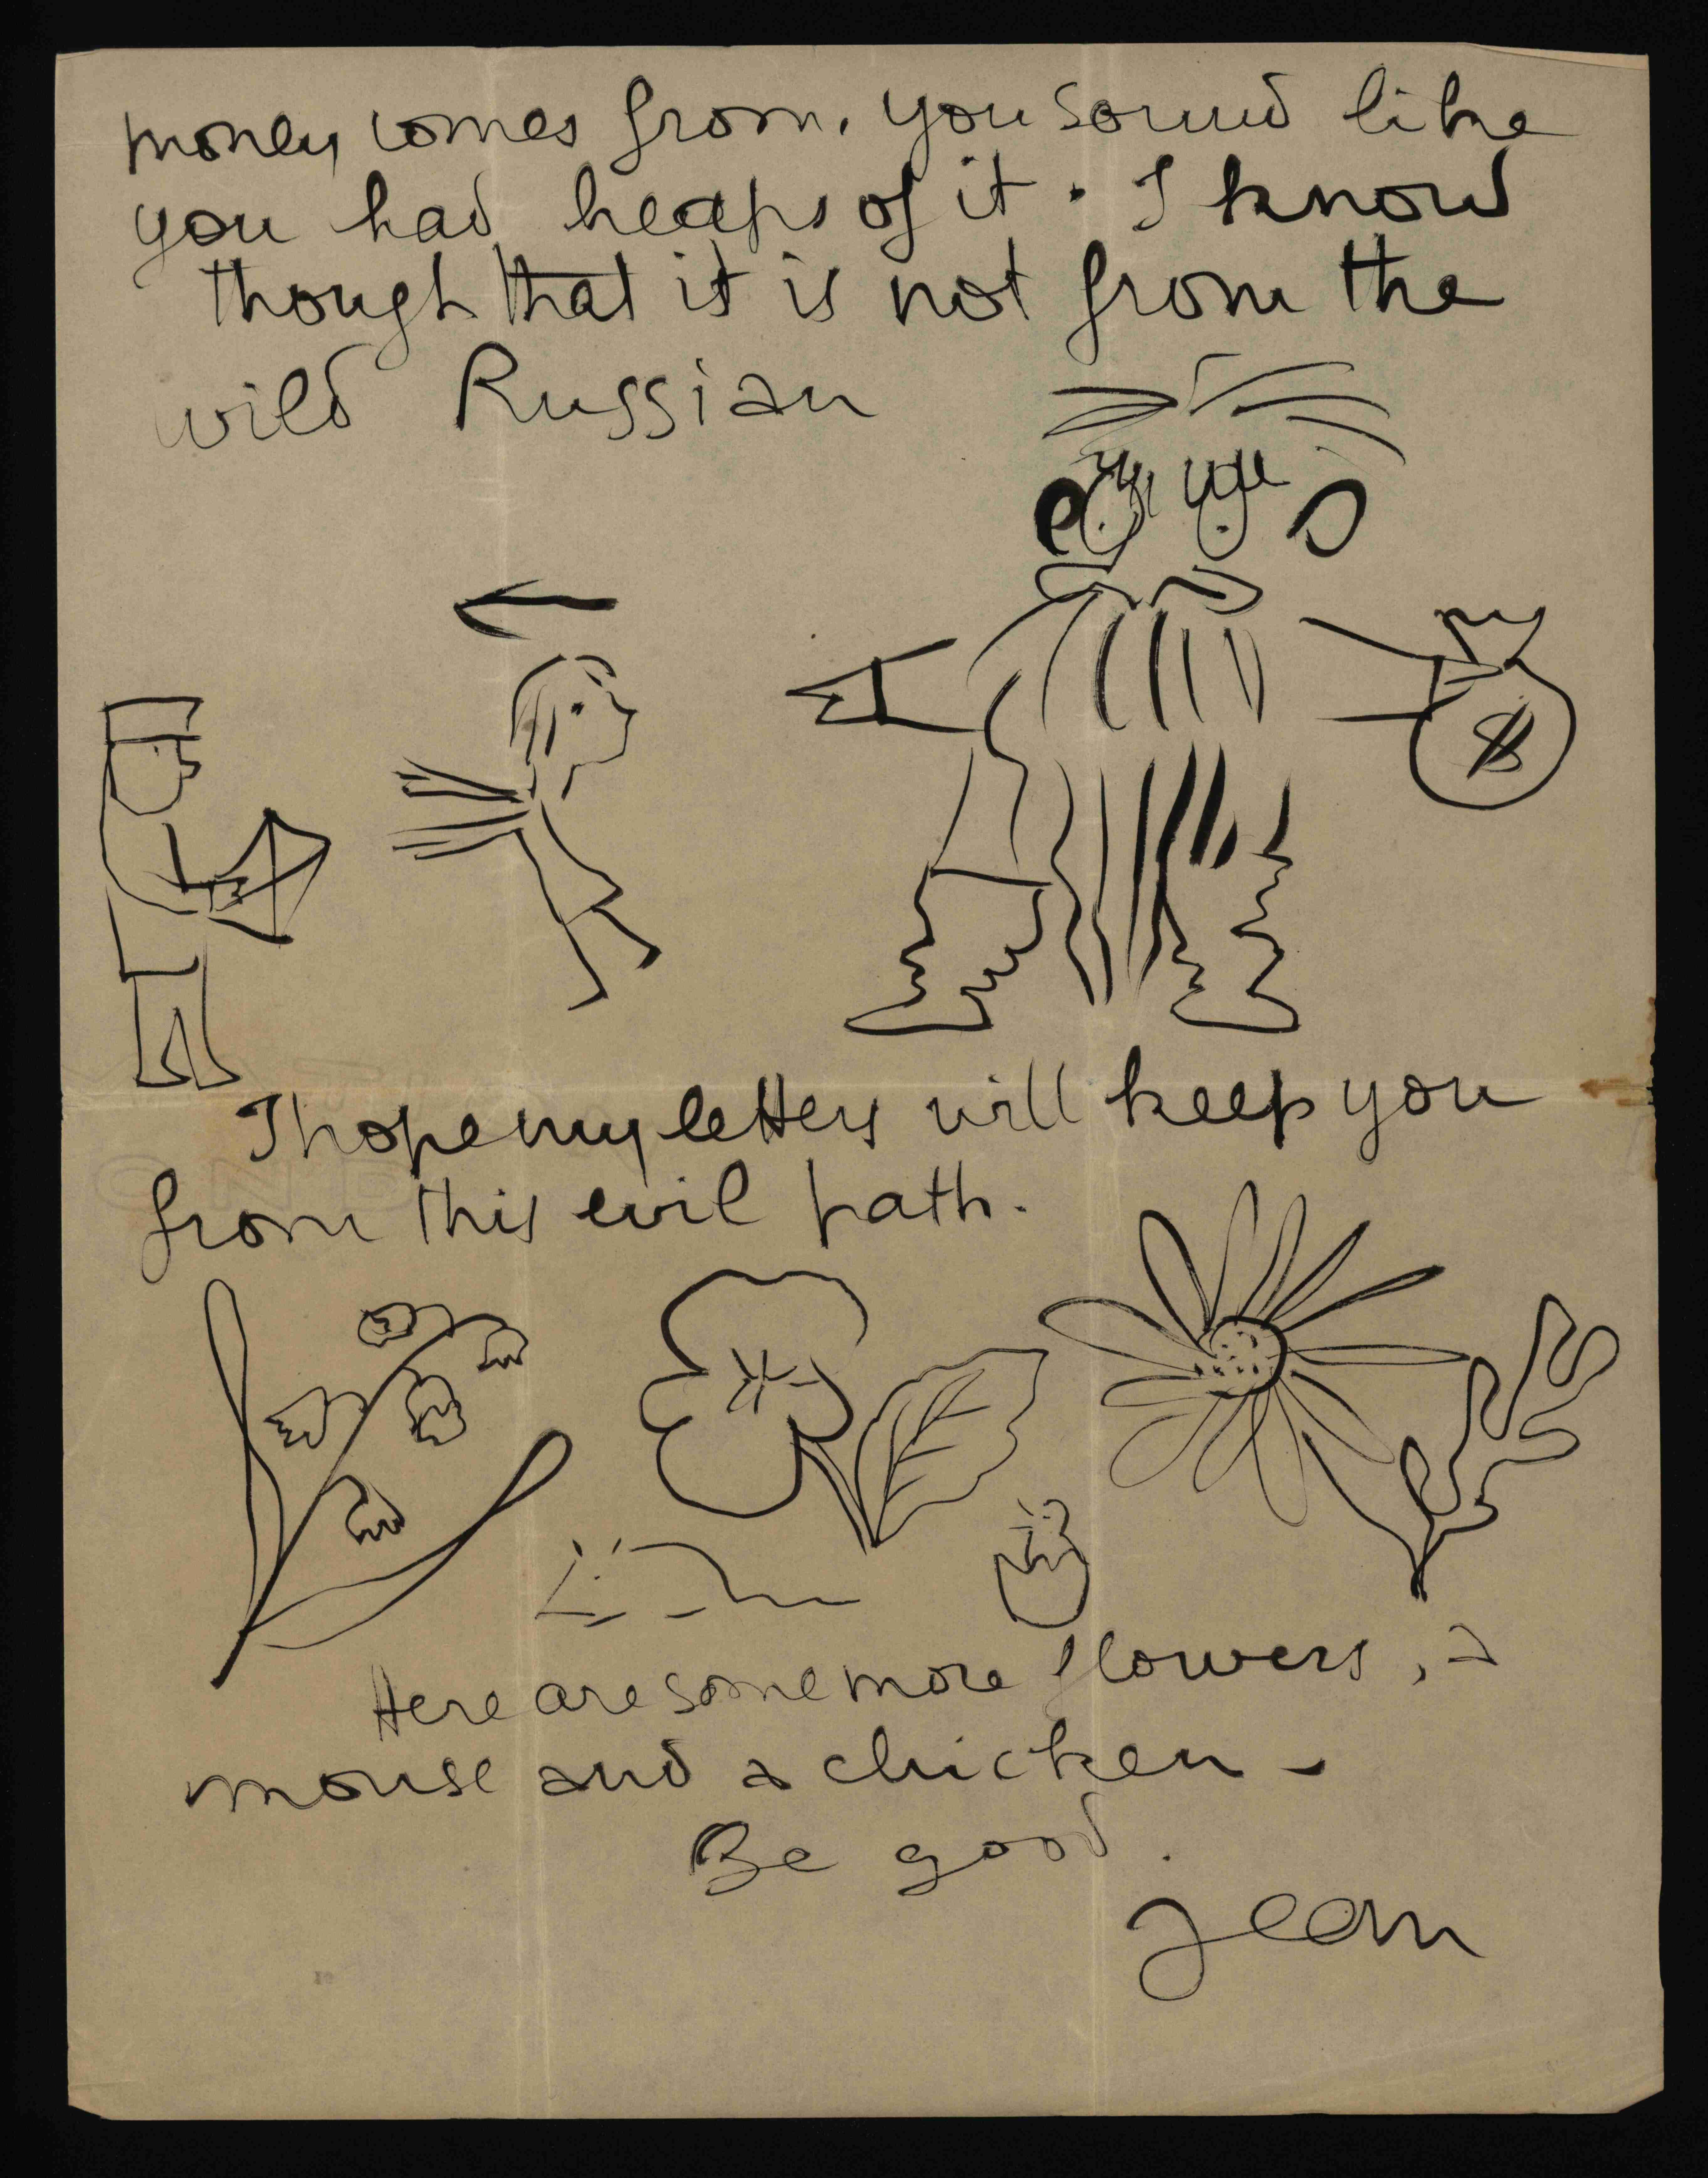 money comes from. You sound like
you had heaps of it. I know
though that it is not from the
wild Russian
$
I hope my letters will keep you
from this evil path.
Here are some more flowers, a
mouse and a chicken -
Be good.
Jean